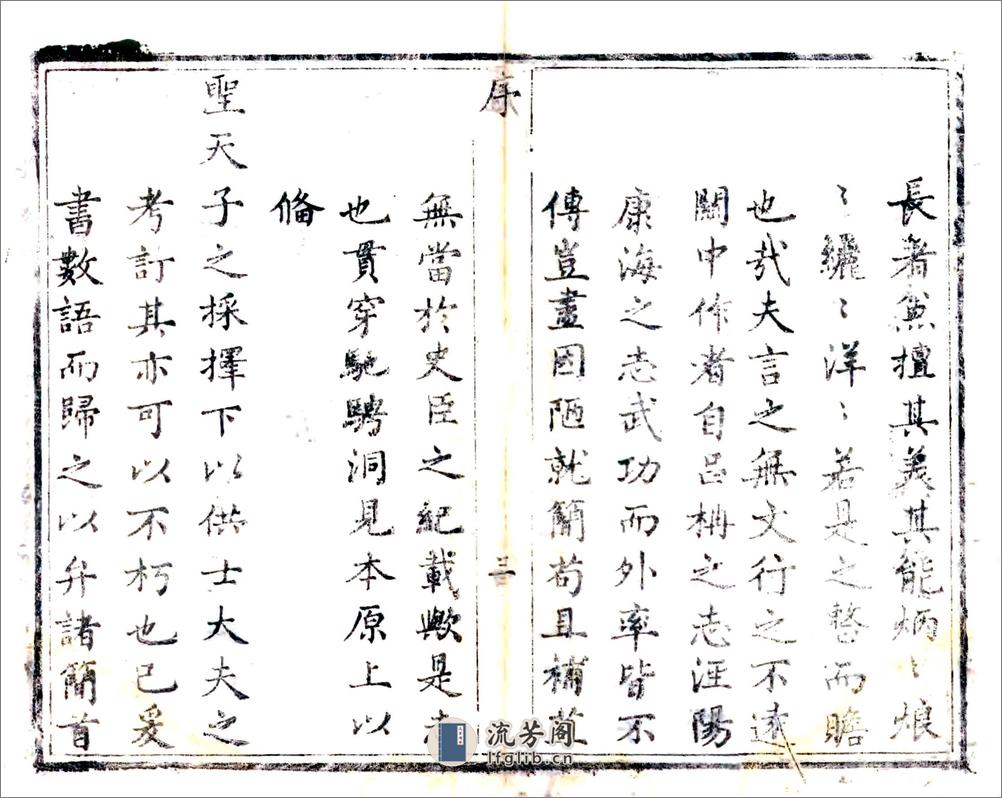 長者兼擅其美其能炳〻烺
〻纚〻洋〻若是之瞥而瞻
也哉夫言之無文行之不遠
關中作者自呂柟之志涇陽
康海之志武功而外率皆不
傳豈盡因陋就簡苟且補苴
序
三
無當於史臣之紀載歟是
也貫穿馳騁洞見本原上以
俻
聖天子之採擇下以供士大夫之
考訂其亦可以不朽也已爰
書數語而歸之以弁諸簡首
流芳阁
lfglib.cn